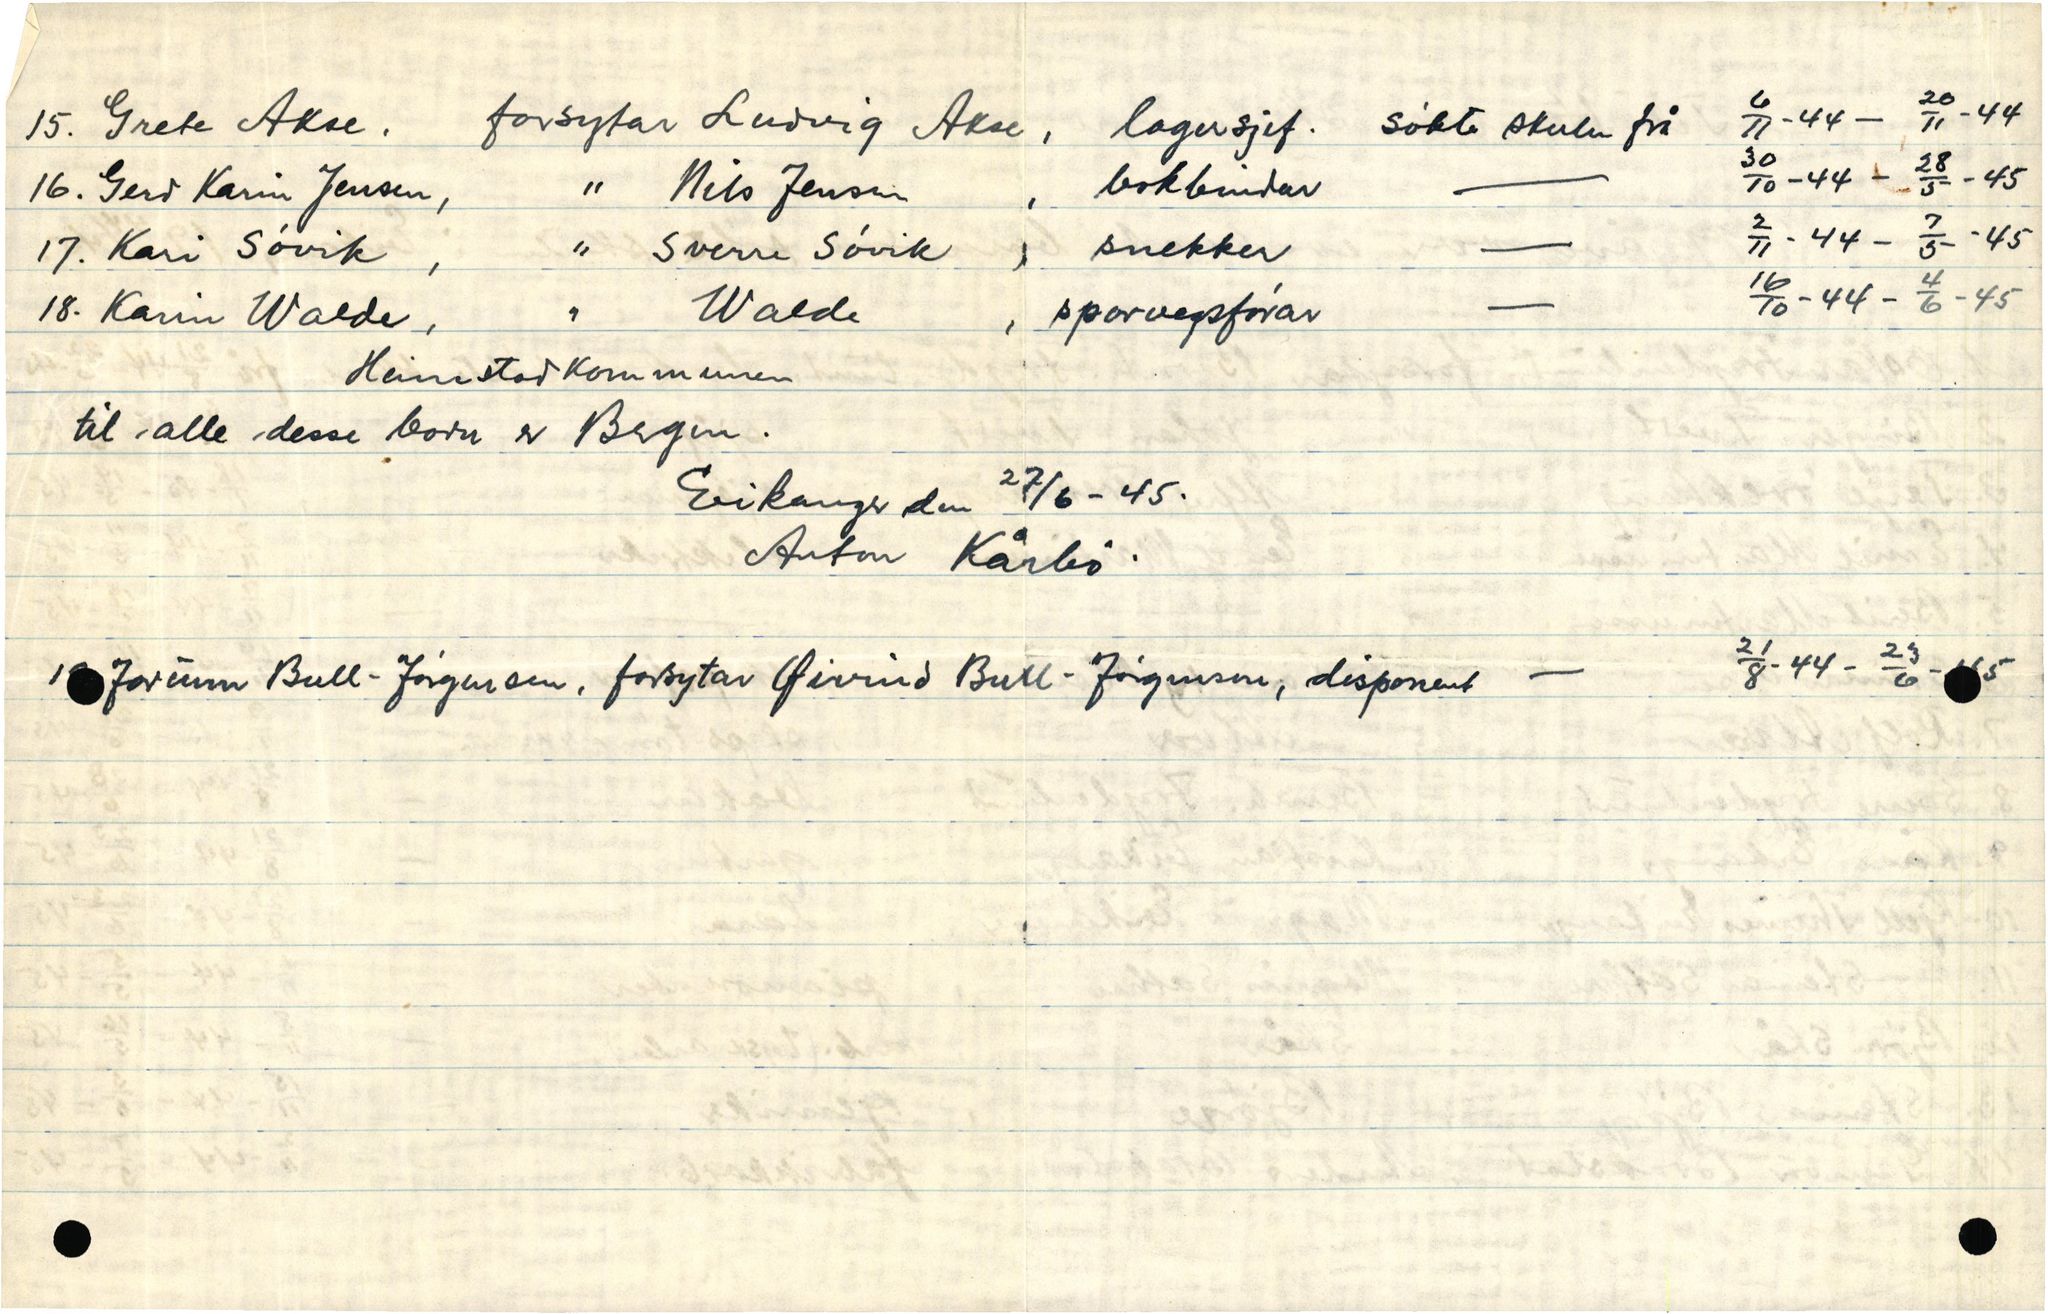 15. Grete Akse. forsytar Ludvig Akse, lagersjef. sökte skulen frå 6/11-44 — 20/11-44
16. Gerd Karin Jensen, " Nils Jensen, bokbindar — 30/10-44 — 28/5-45
17. Kari Sövik, " Sverre Sövik, snekker — 2/11-44 — 7/5-45
18. Karin Walde, " Walde, sporvegsförar — 16/10-44 — 4/6-45
Heimstadkommunen
til alle desse born er Bergen.
Eikanger den 27/6-45.
Anton Kårbö.
Jorunn Bull-Jörgensen, forsytar Øivind Bull-Jörgensen, disponent — 21/8-44 — 23/6-45